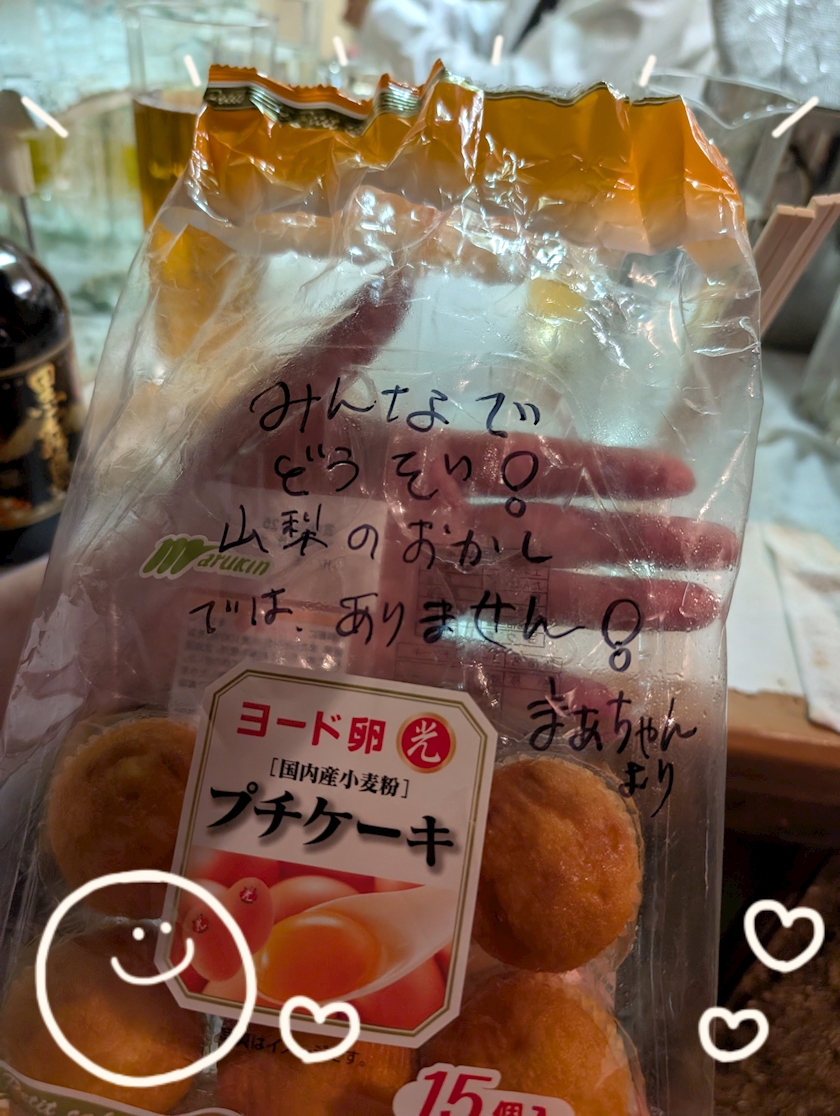 みんなで
どうぞ!
山梨のおかし
では、ありません!
まあちゃん
より
Marukin
ヨード卵 光
[国内産小麦粉]
プチケーキ
15個入